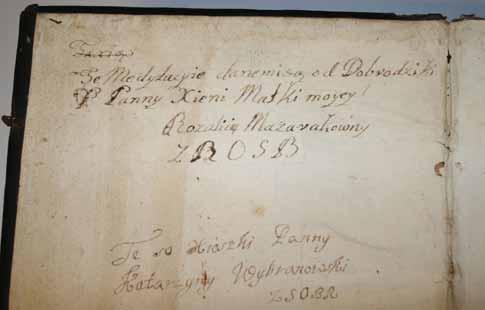 Te Medytacyie danemi są od Dobrodziki
P Panny Xieni Matki mojey
Rozalię Mazarakowny
Z R O S B
Te so xiaszki Panny
Katarzyny Wybranowski
ZSOBR